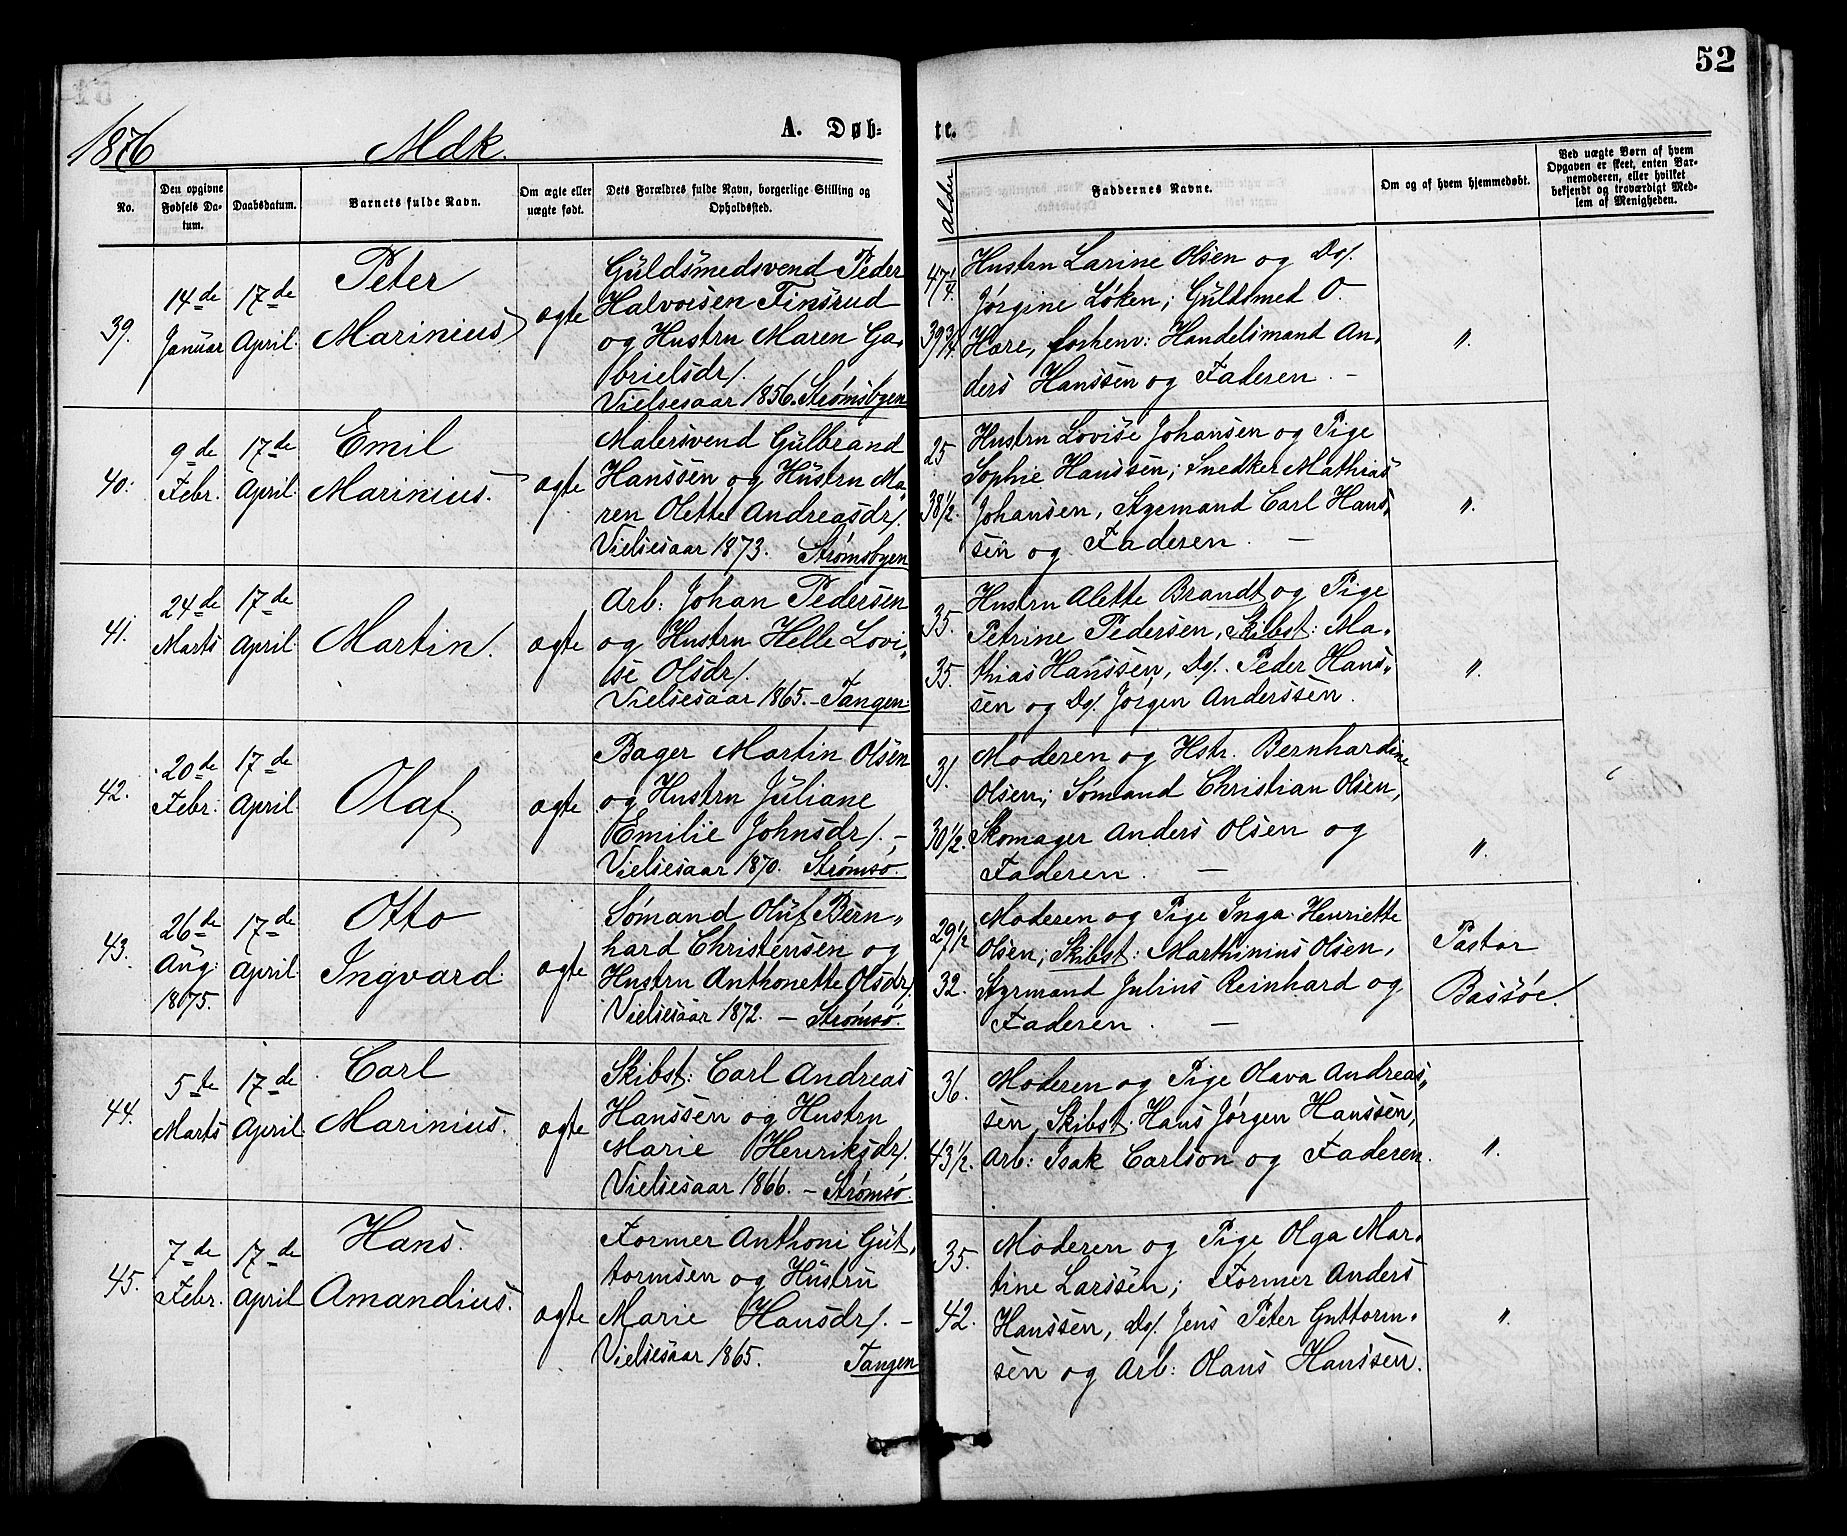 52
1876
Mdk.
A. Døb-
te.
No.
Den opgivne Fødsels Datum.
Daabsdatum.
Barnets fulde Navn.
Om ægte eller uægte født.
Dets Forældres fulde Navn, borgerlige Stilling og Opholdssted.
Alder
Faddernes Navne.
Om og af hvem hjemmedøbt.
Ved uægte Børn af hvem Opgaven er skeet, enten Barnemoderen, eller hvilket bekjendt og troværdigt Medlem af Menigheden.
39.
14de Januar
17de April
Peter
Marinius
ægte
Guldsmedsvend Peder
Halvorsen Finsrud
og Hustru Maren Ga-
brielsdr/.
Vielsesaar 1856. Strømsbyen
47 1/4.
39 3/4
Hustru Larine Olsen og Do/.
Jørgine Løken; Guldsmed O.
Hære, forhenv: Handelsmand An-
ders Hanssen og Faderen. –
"
40.
9de Febr.
17de April
Emil
Marinius.
ægte
Malersvend Gulbrand
Hanssen og Hustru Ma-
ren Olette Andreasdr/.
Vielsesaar 1873. Strømsbyen
25
38 1/2.
Hustru Lovise Johansen og Pige
Sophie Hanssen; Snedker Mathias
Johansen, Styrmand Carl Hans-
sen og Faderen. –
"
41.
24de Marts
17de April
Martin.
ægte
Arb: Johan Pedersen
og Hustru Helle Lovi-
se Olsdr/.
Vielsesaar 1865. – Tangen
35.
35.
Hustru Alette Brandt og Pige
Petrine Pedersen, Skibst: Ma-
thias Hanssen, Do/. Peder Hans-
sen og Do/. Jørgen Anderssen.
"
42.
20de Febr:
17de April
Olaf
ægte
Bager Martin Olsen
og Hustru Juliane
Emilie Johnsdr/. –
Vielsesaar 1870. Strømsø.
31.
30 1/2.
Moderen og Hstr. Bernhardine
Olsen; Sømand Christian Olsen,
Skomager Anders Olsen og
Faderen. –
"
43.
26de Aug: 1875.
17de April
Otto
Ingvard.
ægte
Sømand Oluf Bern-
hard Christensen og
Hustru Anthonette Olsdr/.
Vielsesaar 1872. – Strømsø.
29 1/2
32.
Moderen og Pige Inga Henriette
Olsen, Skibst: Marthinius Olsen,
Styrmand Julius Reinhard og
Faderen. –
Pastor
Bassøe.
44.
5te Marts
17de April
Carl
Marinius.
ægte
Skibst: Carl Andreas
Hanssen og Hustru
Marie Henriksdr/.
Vielsesaar 1866. – Strømsø.
36.
43 1/2.
Moderen og Pige Olava Andreas-
sen, Skibst. Hans Jørgen Hanssen,
Arb: Isak Carlson og Faderen.
"
45.
7de Febr.
17de April
Hans
Amandius.
ægte
Former Anthoni Gut-
tormsen og Hustru
Marie Hansdr/. –
Vielsesaar 1865. Tangen
35.
42.
Moderen og Pige Olga Mar-
tine Larssen; Former Anders
Hanssen, Do/. Jens Peter Guttorm-
sen og Arb: Olaus Hanssen.
"